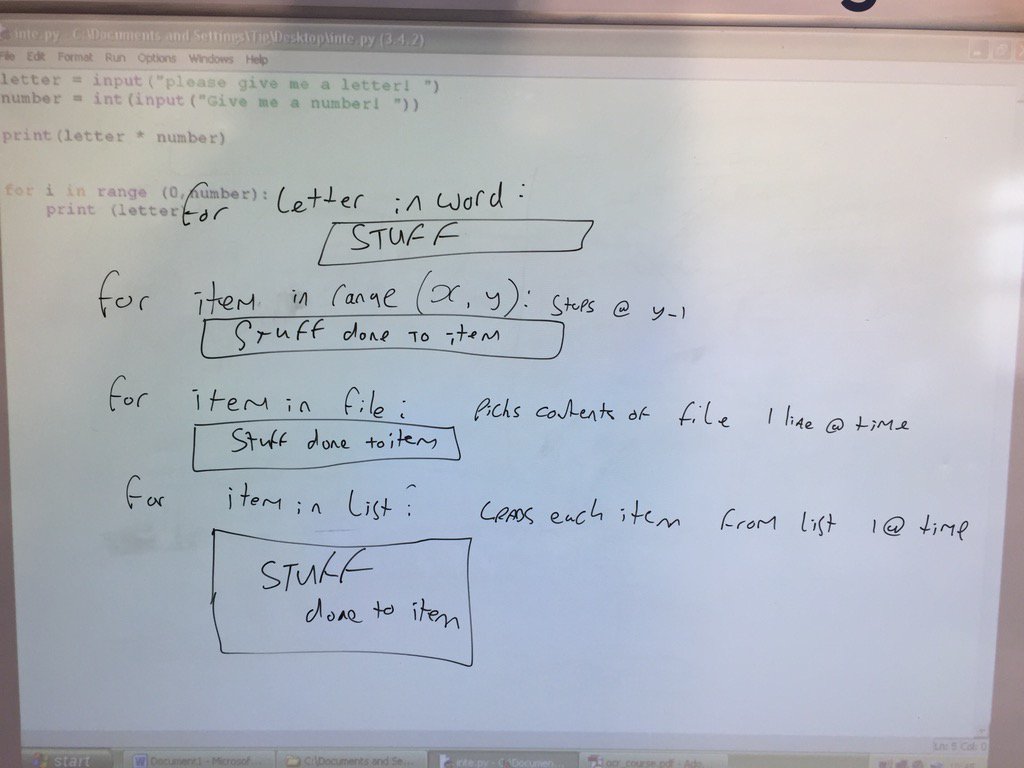 inte.py - C:\Documents and Settings\Tip\Desktop\inte.py (3.4.2)
File Edit Format Run Options Windows Help
letter = input("please give me a letter! ")
number = int(input("Give me a number! "))
print(letter * number)
for i in range (0,number):
print (letter
for letter in word:
STUFF
for item in range (x, y): STOPS @ y-1
STUFF done TO item
for item in file: Picks contents of file 1 line @ time
Stuff done to item
for item in list: each item from list 1 @ time
STUFF
done to item
Ln: 9 Col: 0
start Document1 - Microsof... C:\Documents and Se... inte.py - C:\Documen... ocr_course.pdf - Ado...